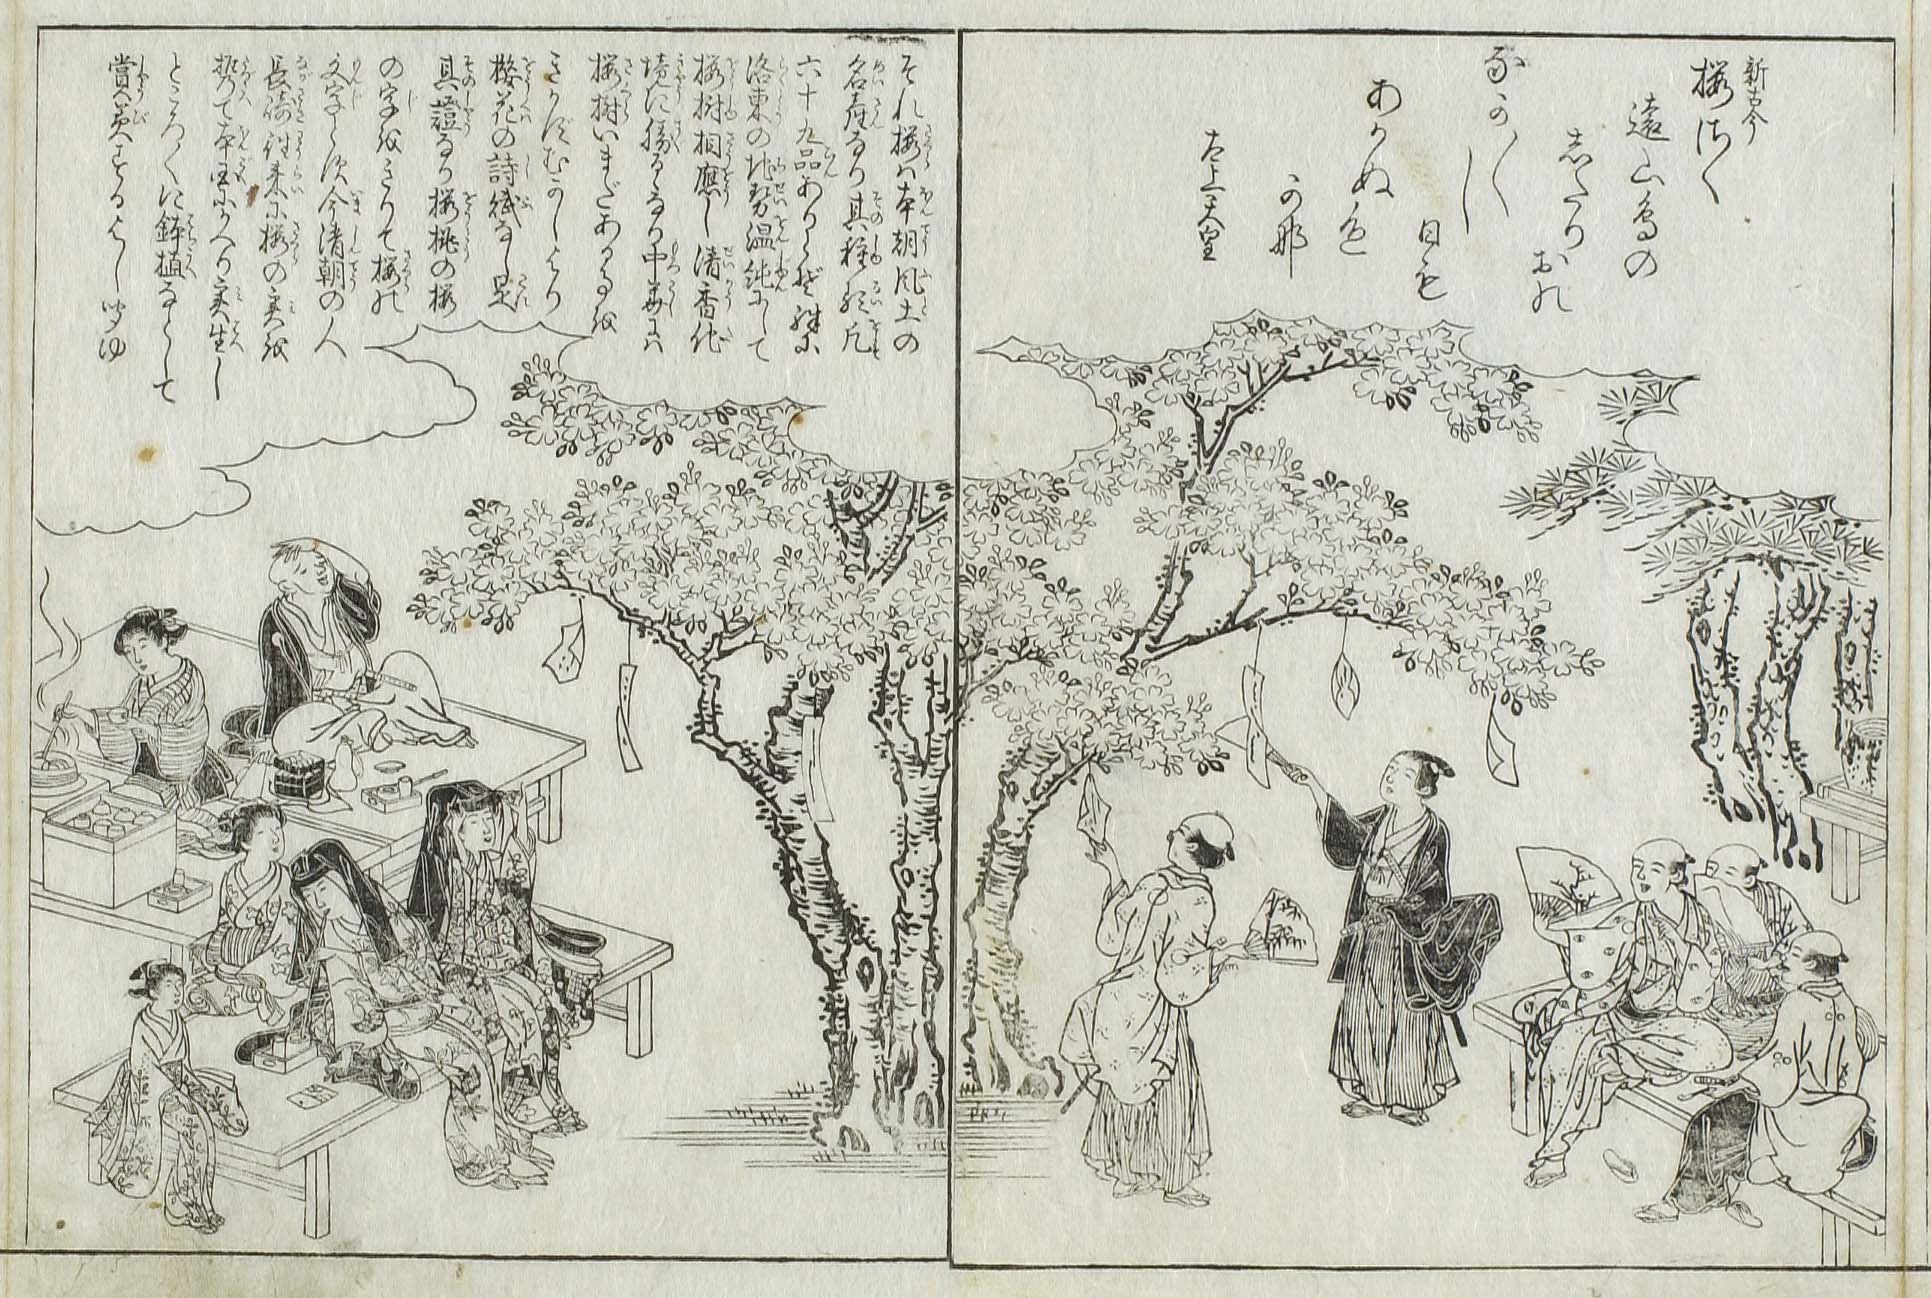 新古今
桜さく
遠山鳥の
志だりおの
なが〳〵し
日も
あかぬ色
か那
太上天皇
それ桜ハ本朝風土の
名産なり其種類凡
六十九品ありとぞ殊に
洛東の地勢温純にして
桜樹相應し清香他
境に勝るゝなり中華にハ
桜樹いまだあるを
きかずむかしより
桜花の詩賦なし是
其證なり桜桃の桜
の字をかりて桜の
文字とす今清朝の人
長崎往来に桜の実を
携て本国にかへり実生し
ところ〳〵に鉢植などして
賞美するよし聞ゆ